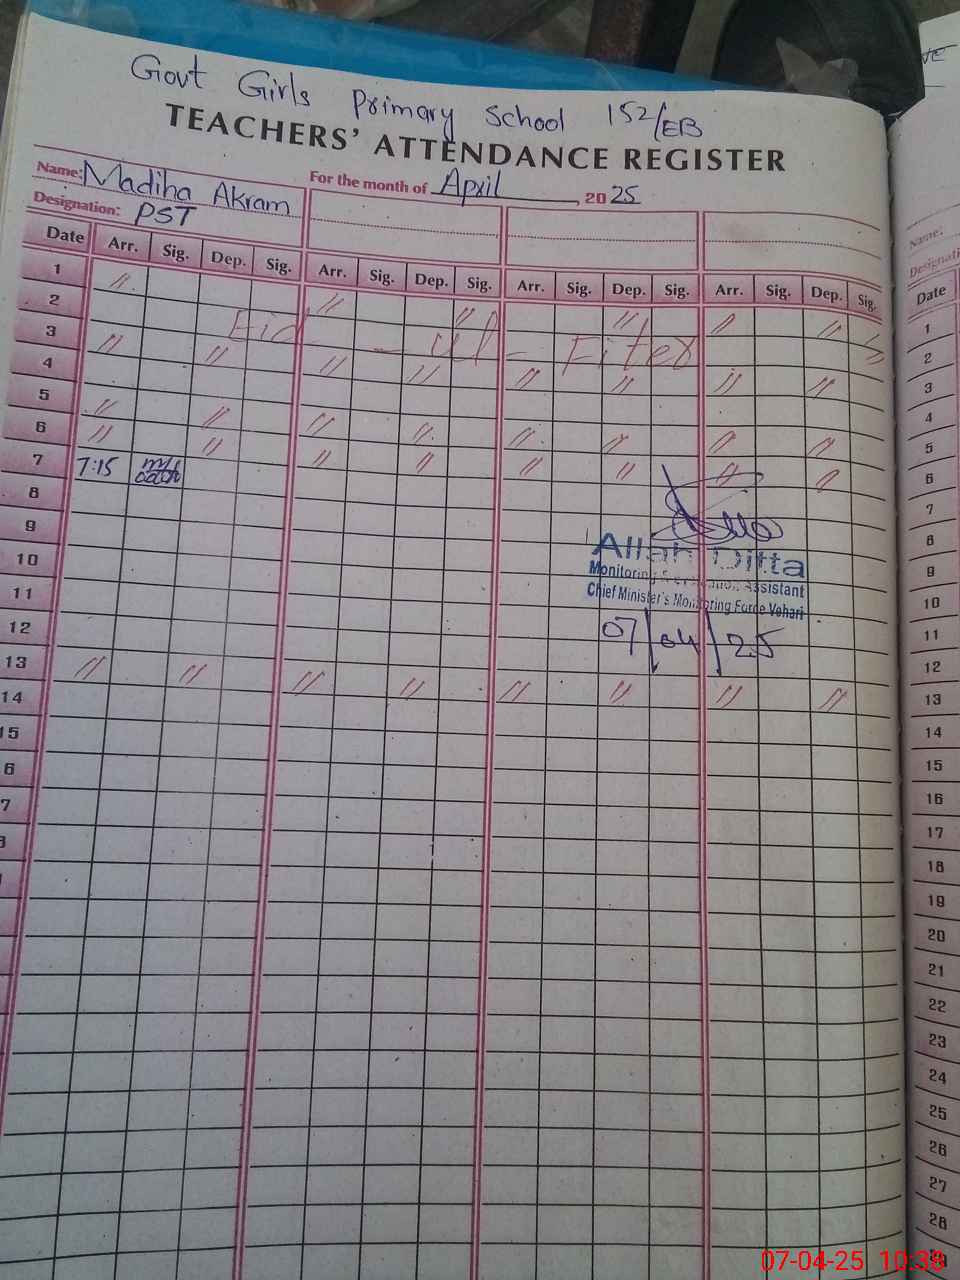 Govt Girls Primary School 152/EB
TEACHERS' ATTENDANCE REGISTER
Name: Madiha Akram
For the month of April, 2025
Designation: PST
Date Arr. Sig. Dep. Sig. Arr. Sig. Dep. Sig. Arr. Sig. Dep. Sig. Arr. Sig. Dep. Sig.
1 // 
2 // // // // //
Eid - ul - Fiter
3 // //
4 // // // // // //
5 // //
6 // // // // // // // //
7 7:15 // // // // // //
8
9
10
11
12
13 // // // // // // // //
14
15
6
7
Allah Ditta
Monitoring & Evaluation Assistant
Chief Minister's Monitoring Force Vehari
07/04/25
Name:
Designati
Date
1
2
3
4
5
6
7
8
9
10
11
12
13
14
15
16
17
18
19
20
21
22
23
24
25
26
27
28
07-04-25 10:38